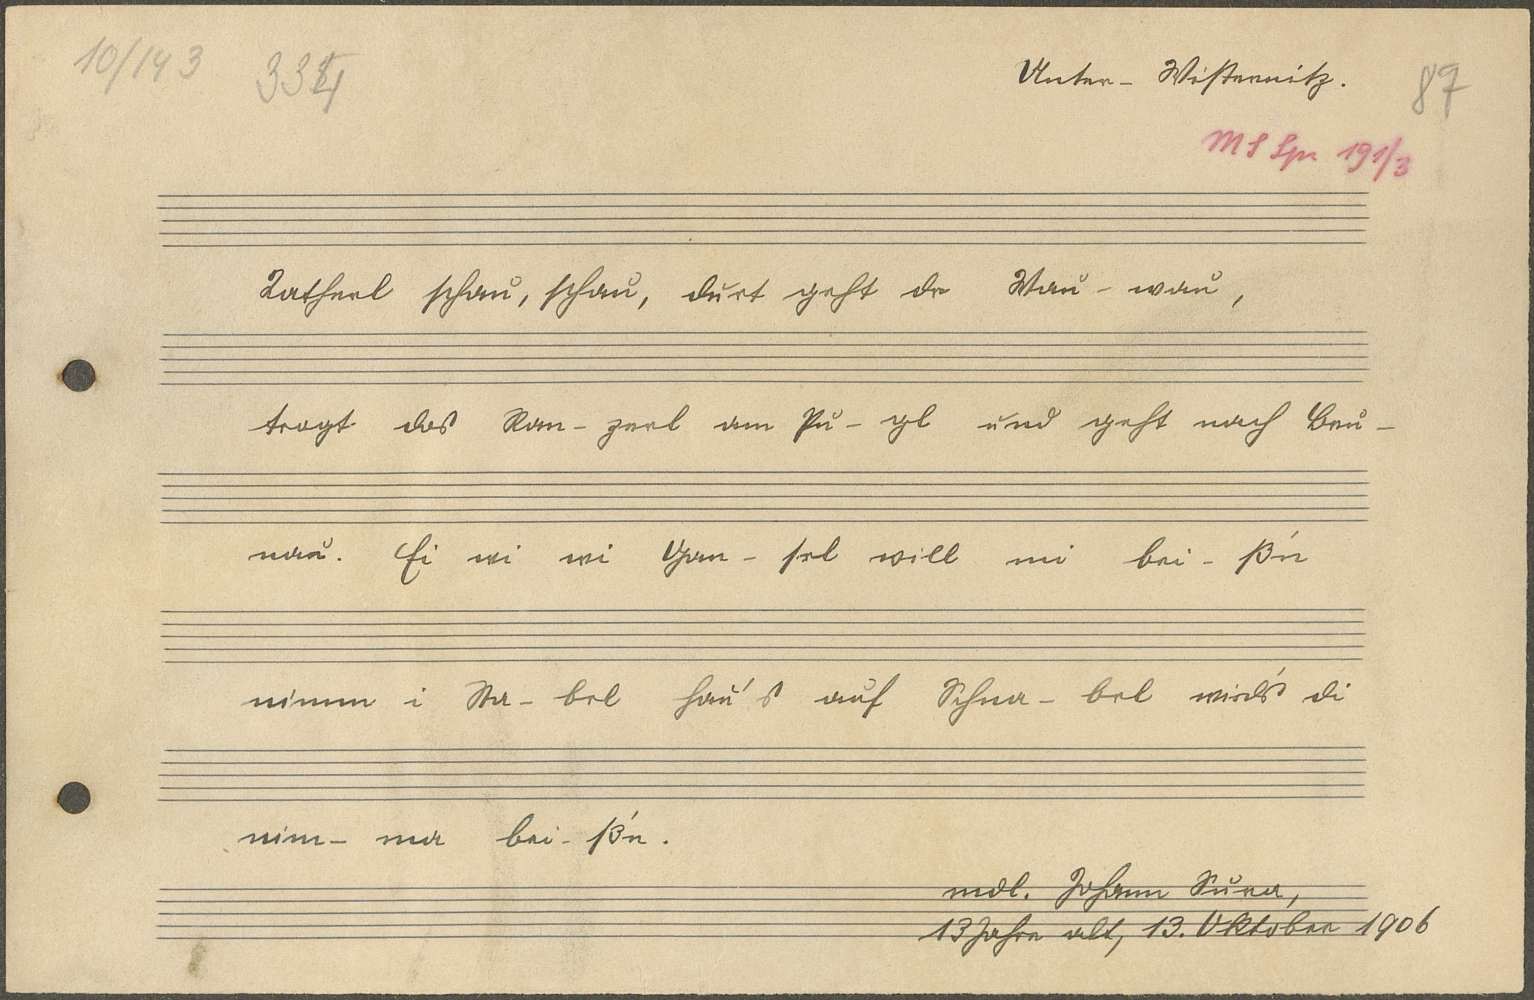 10/143 334 Unter-Wisternitz. 87
MS Spr 191/3
Katherl schau, schau, durt geht dr Wau-wau,
tragt das Ran-zerl am Pu-gl und geht nach Bru-
nau. Ei wi wi Gan-serl will mi bei-ß'n
nimm i Sta-bel hau's auf Schna-bel wird's di
nim-ma bei-ß'n.
mdl. Johann Sura,
13 Jahre alt, 13. Oktober 1906